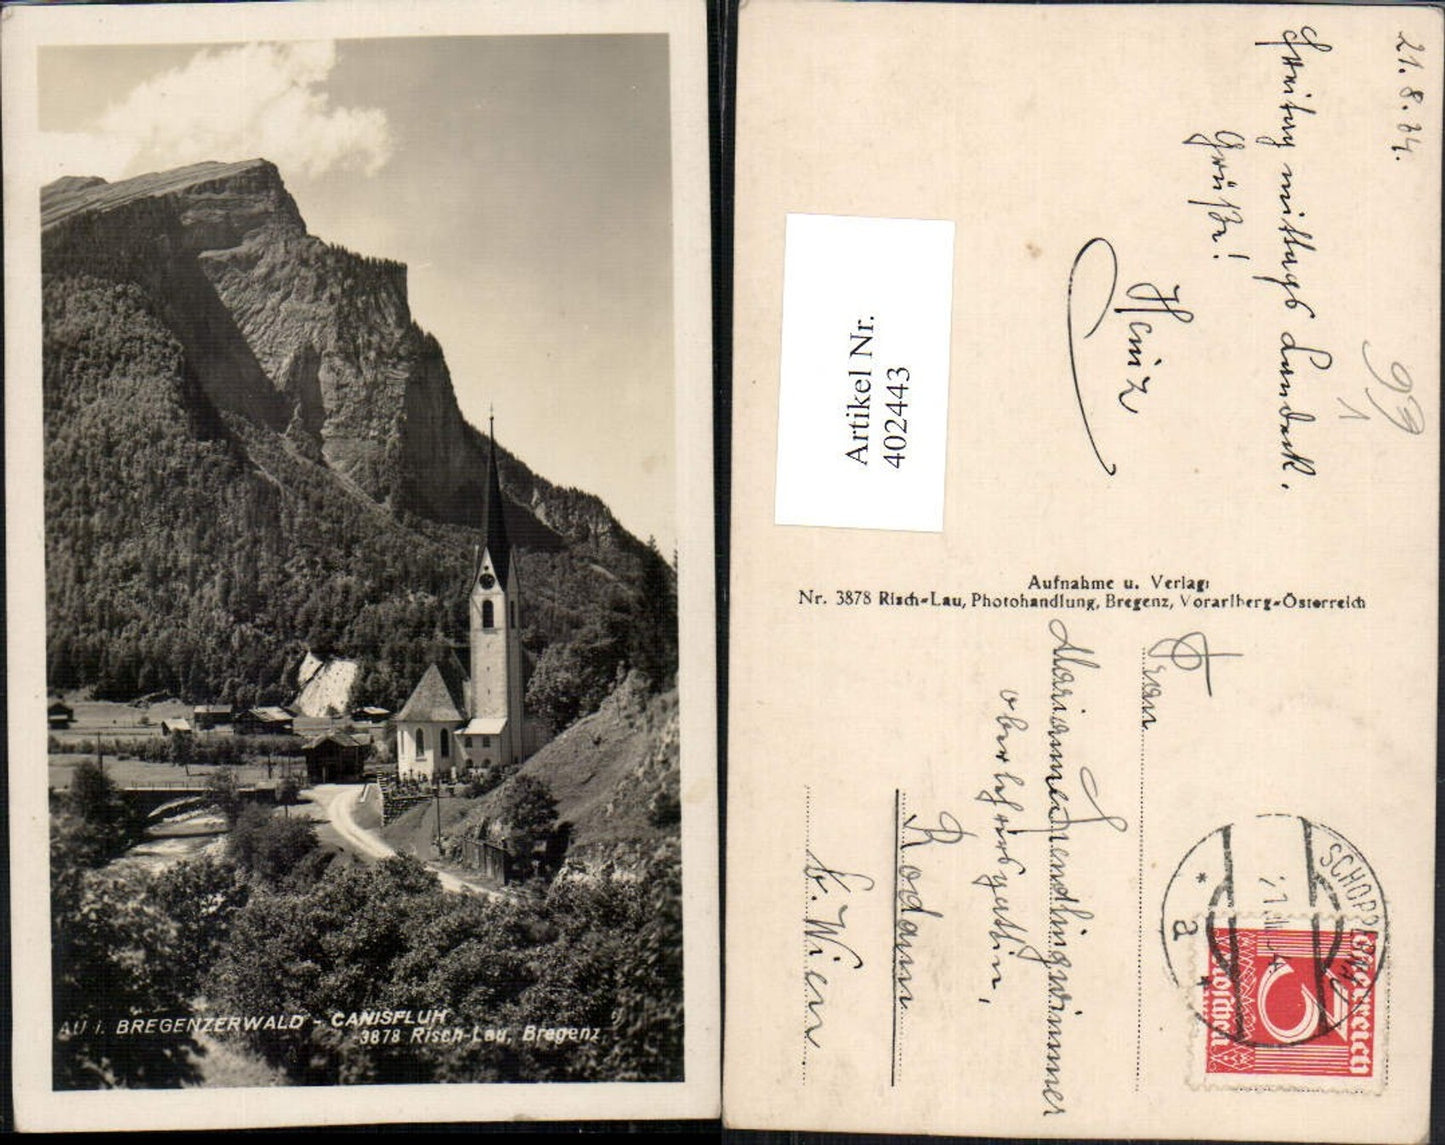 AU i. BREGENZERWALD - CANISFLUH
3878 Risch-Lau, Bregenz
21.8.34.
Freitag mittags Landeck.
Grüße!
Heinz
99
1
Artikel Nr.
402443
Aufnahme u. Verlag:
Nr. 3878 Risch-Lau, Photohandlung, Bregenz, Vorarlberg-Österreich
Frau
Marianne Gendlingwimmer
oberlehrersgattin,
Rodaun
b. Wien
SCHOPPERNAU
a
Österreich
5
Groschen